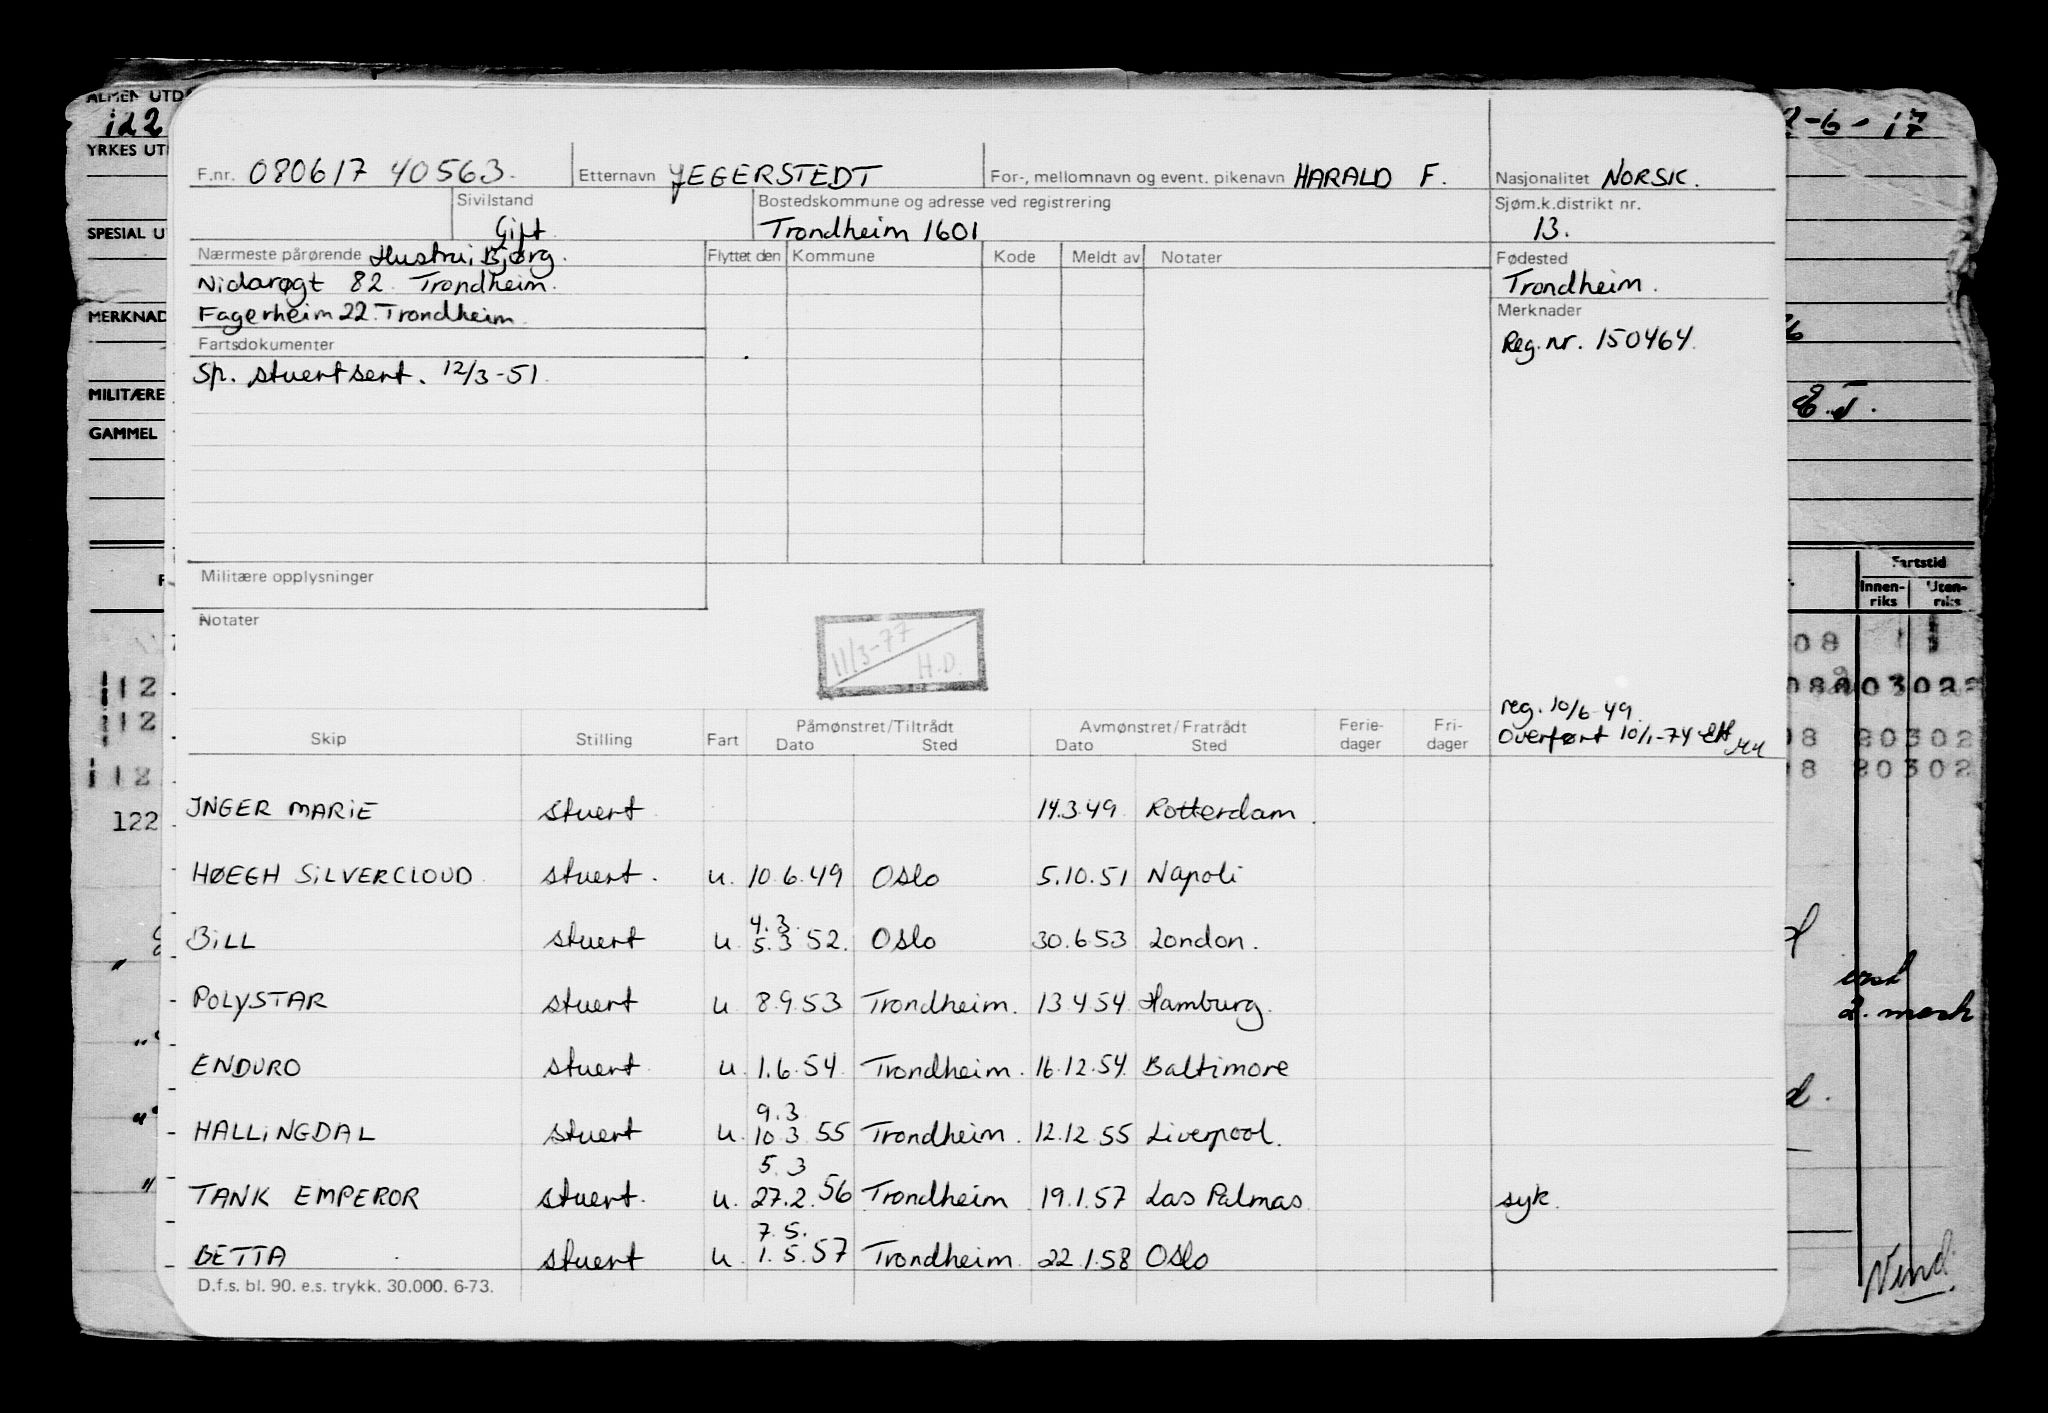 ALMEN UTD
YRKES UT
SPESIAL U
MERKNAD
MILITÆRE
GAMMEL
F.nr. 080617 40563.
Etternavn JEGERSTEDT
For-, mellomnavn og event. pikenavn HARALD F.
Nasjonalitet NORSK.
Sivilstand
Gift
Bostedskommune og adresse ved registrering
Trondheim 1601
Sjøm.k.distrikt nr.
13.
Nærmeste pårørende Hustru, Bjørg.
Nidarøgt 82. Trondheim.
Fagerheim 22. Trondheim
Flyttet den Kommune Kode Meldt av Notater
Fødested
Trondheim.
Merknader
Reg. nr. 150464.
Fartsdokumenter
Sp. stuertsert. 12/3-51.
Militære opplysninger
Notater
11/3-77
H.D.
reg. 10/6 49.
Overført 10/1-74
Skip Stilling Fart Påmønstret/Tiltrådt Avmønstret/Fratrådt Ferie- Fri-
Dato Sted Dato Sted dager dager
INGER MARIE stuert 14.3.49 Rotterdam.
HØEGH SILVERCLOUD stuert. u. 10.6.49 Oslo 5.10.51 Napoli
4.3.
BILL stuert u 5.3 52. Oslo 30.6.53 London.
POLYSTAR stuert u 8.9.53 Trondheim. 13.4.54 Hamburg.
ENDURO stuert u. 1.6.54. Trondheim. 16.12.54. Baltimore
9.3
HALLINGDAL stuert u. 10.3.55 Trondheim. 12.12.55 Liverpool.
5.3
TANK EMPEROR stuert. u. 27.2.56 Trondheim 19.1.57 Las Palmas syk.
7.5.
BETTA stuert u. 1.5.57 Trondheim. 22.1.58 Oslo
D.f.s. bl. 90. e.s. trykk. 30.000. 6-73.
-6-17
E.T.
Fartstid
Innen-
riks
Uten-
riks
112
112
112
122
2. mask
Vend